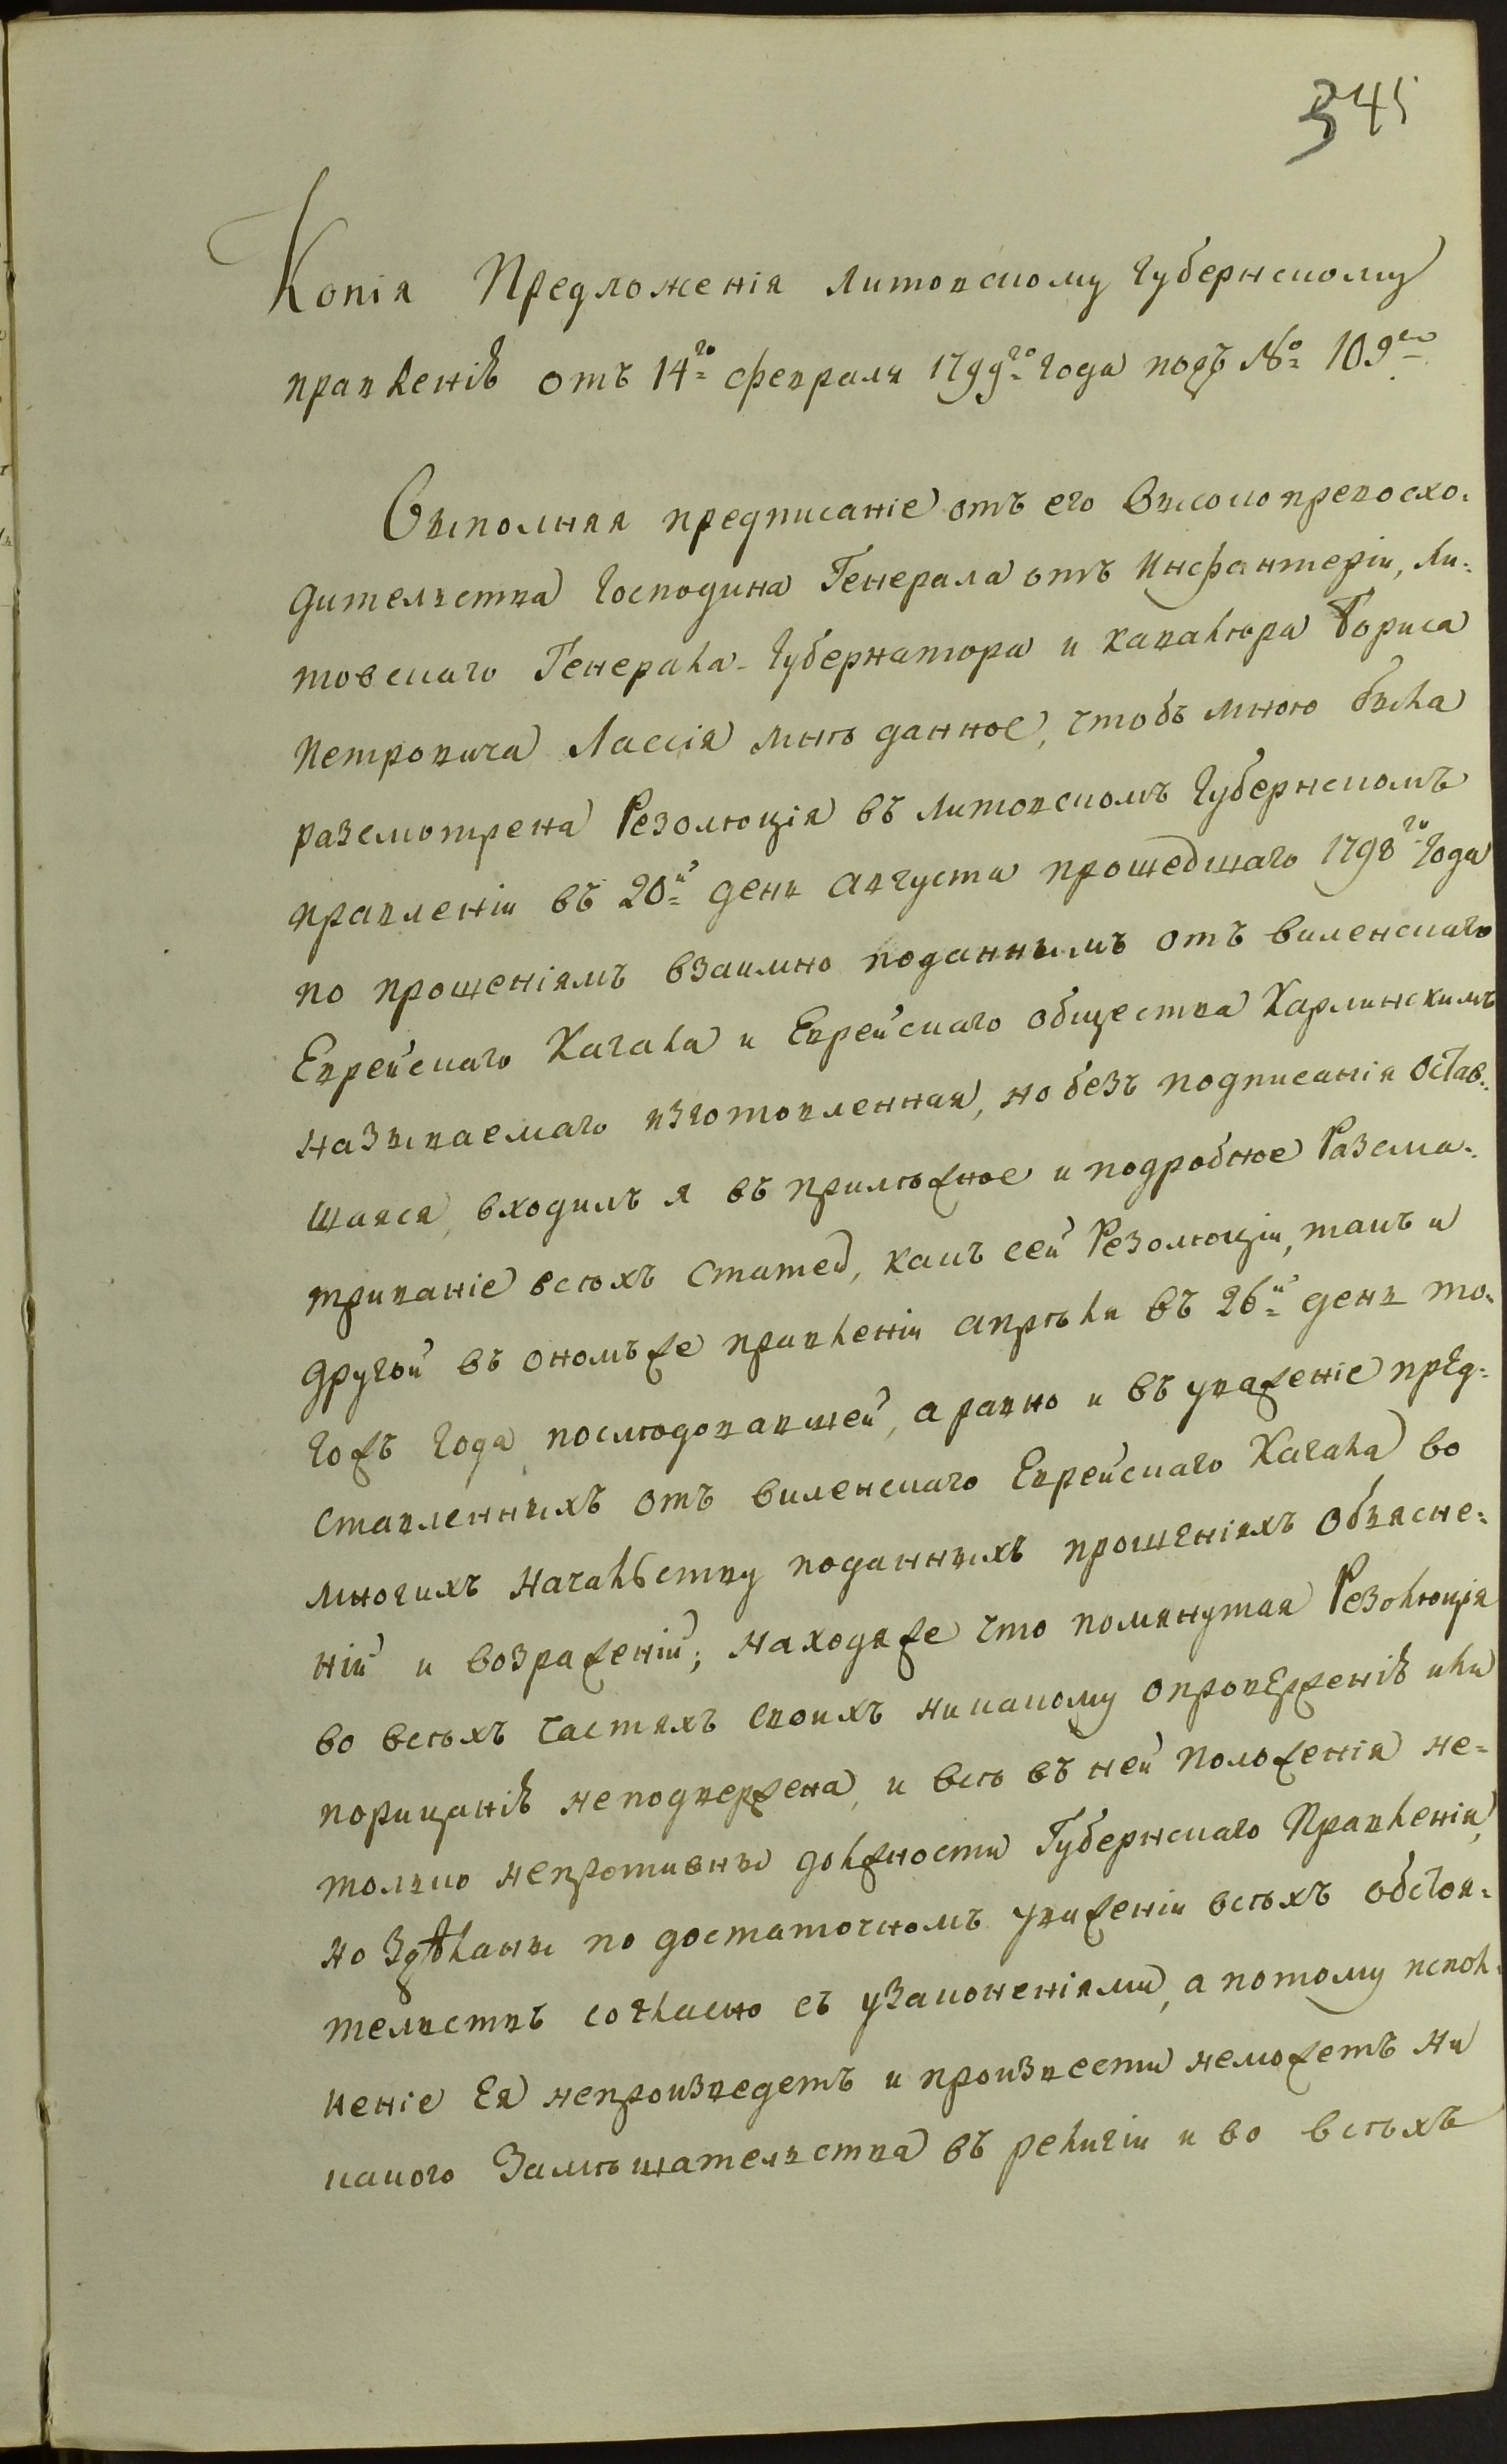 345
Копія Предложенія Литовскому Губернскому
правленію отъ 14го февраля 1799го года подъ № 109мъ
Выполняя предписаніе отъ его Высокопревосхо-
дительства Господина Генерала отъ Инфантеріи, Ли-
товскаго Генерала-Губернатора и кавалера Бориса
Петровича Лассія мнѣ данное, чтобъ мною была
разсмотрена Резолюція въ Литовскомъ Губернскомъ
правленіи въ 20й день августа прошедшаго 1798го Года
по прошеніямъ взаимно поданнымъ отъ виленскаго
Еврейскаго Кагала и Еврейскаго общества Карлинскимъ
называемаго изготовленная, но безъ подписанія остав-
шаяся, входилъ я въ прилѣжное и подробное Разсма-
триваніе всѣхъ статей, какъ сей Резолюціи, такъ и
другой въ ономъже правленіи апрѣля въ 26й день то-
гожъ года послѣдовавшей, а равно и въ уваженіе пред-
ставленныхъ отъ виленскаго Еврейскаго Кагала во
многихъ начальству поданныхъ прошеніяхъ объясне-
ній и возраженій; находяже что помянутая Резолюція
во всѣхъ частяхъ своихъ никакому опроверженію или
порицанію неподвержена, и всѣ въ ней положенія не-
только непротивны должности Губернскаго Правленія,
но здѣланы по достаточномъ уваженіи всѣхъ обстоя-
тельствъ согласно съ узаконеніями, а потому испол-
неніе Ея непроизведетъ и произвести неможетъ ни
какого Замѣшательства въ религіи и во всѣхъ